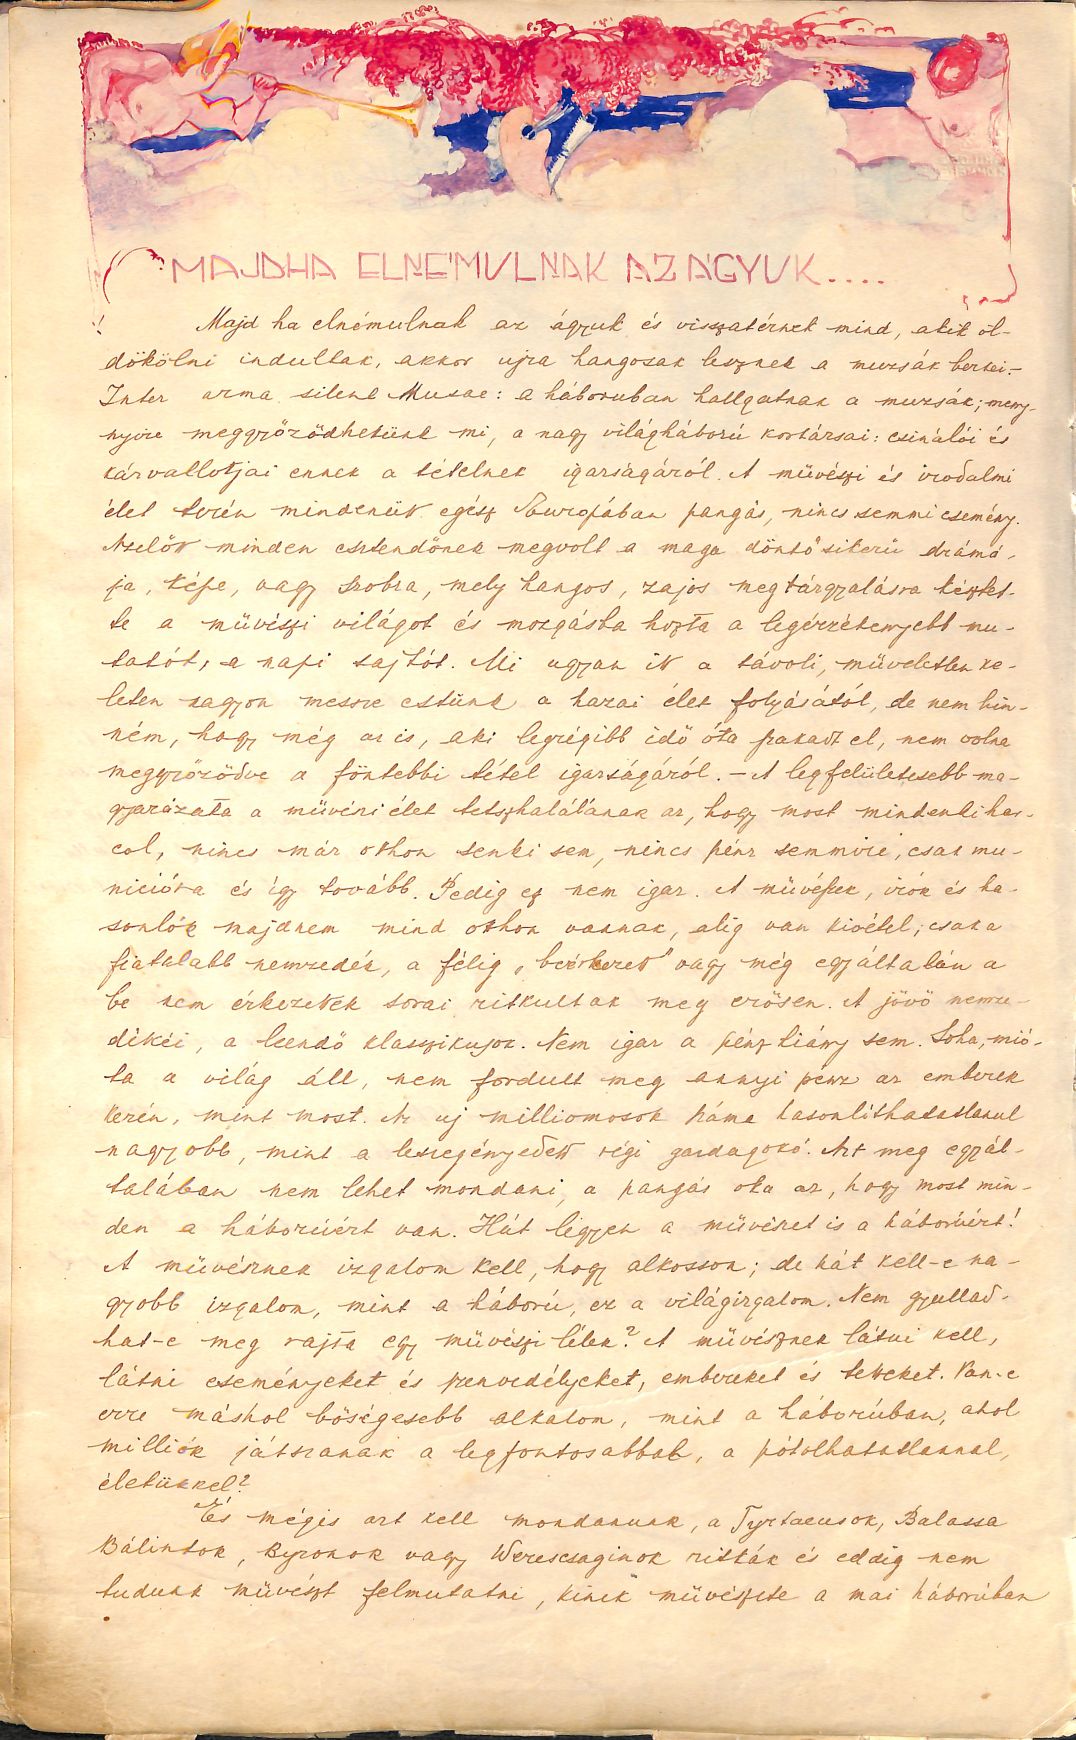 MAJDHA ELNÉMULNAK AZ ÁGYUK....
Majd ha elnémulnak az ágyuk és visszatérnek mind, akik öl-
dökölni indultak, akkor ujra hangosak lesznek a muzsák berkei.-
Inter arma silent Musae: a háboruban hallgatnak a muzsák; meny-
nyire meggyőződhetünk mi, a nagy világháború kortársai: csinálói és
kárvallottjai ennek a tételnek igazságáról. A művészi és irodalmi
élet terén mindenütt egész Európában pangás, nincs semmi esemény.
Azelőtt minden esztendőnek megvolt a maga döntő sikerü drámá-
ja, képe, vagy szobra, mely hangos, zajos megtárgyalásra késztet-
te a művészi világot és mozgásba hozta a legérzékenyebb mu-
tatót, a napi sajtót. Mi ugyan itt a távoli, műveletlen ke-
leten nagyon messze estünk a hazai élet folyásától, de nem hin-
ném, hogy még az is, aki legrégibb idő óta szakadt el, nem volna
meggyőződve a föntebbi tétel igazságáról. - A legfelületesebb ma-
gyarázata a művészi élet tetszhalálának az, hogy most mindenki har-
col, nincs már otthon senki sem, nincs pénz semmire, csak mu-
nicióra és így tovább. Pedig ez nem igaz. A művészek, irók és ha-
sonlók majdnem mind otthon vannak, alig van kivétel; csak a
fiatalabb nemzedék, a félig "beérkezett" vagy még egyáltalán a
be nem érkezettek sorai ritkultak meg erősen. A jövő nemze-
dékéi, a leendő klasszikusok. Nem igaz a pénzhiány sem. Soha, mió-
ta a világ áll, nem fordult meg annyi pénz az emberek
kezén, mint most. Az uj milliomosok száma hasonlíthatatlanul
nagyobb, mint a leszegényedett régi gazdagoké. Azt meg egyál-
talában nem lehet mondani, a pangás oka az, hogy most min-
den a háborúért van. Hát légyen a művészet is a háborúért!
A művésznek izgalom kell, hogy alkosson; de hát kell-e na-
gyobb izgalom, mint a háború, ez a világizgalom. Nem gyullad-
hat-e meg rajta egy művészi lélek? A művésznek látni kell,
látni eseményeket és szenvedélyeket, embereket és tetteket. Van-e
erre máshol bőségesebb alkalom, mint a háborúban, ahol
milliók játszanak a legfontosabbal, a pótolhatatlannal,
életükkel?
És mégis azt kell mondanunk, a Tyrtaeusok, Balassa
Bálintok, Byronok vagy Werescsaginok ritkák és eddig nem
tudunk művészt felmutatni, kinek művészete a mai háborúban